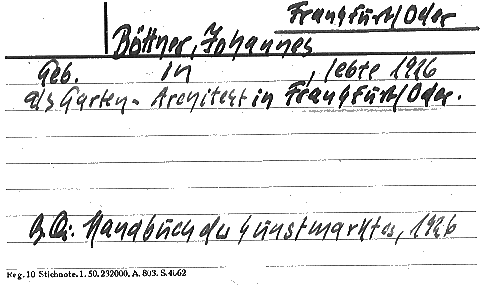 Frankfurt/Oder
Böttner, Johannes
Geb. in , lebte 1926
als Garten-Architekt in Frankfurt/Oder.
B.Qu.: Handbuch des Kunstmarktes, 1926
Reg. 10 Stichnote. 1. 50. 232000. A. 803. S. 4662